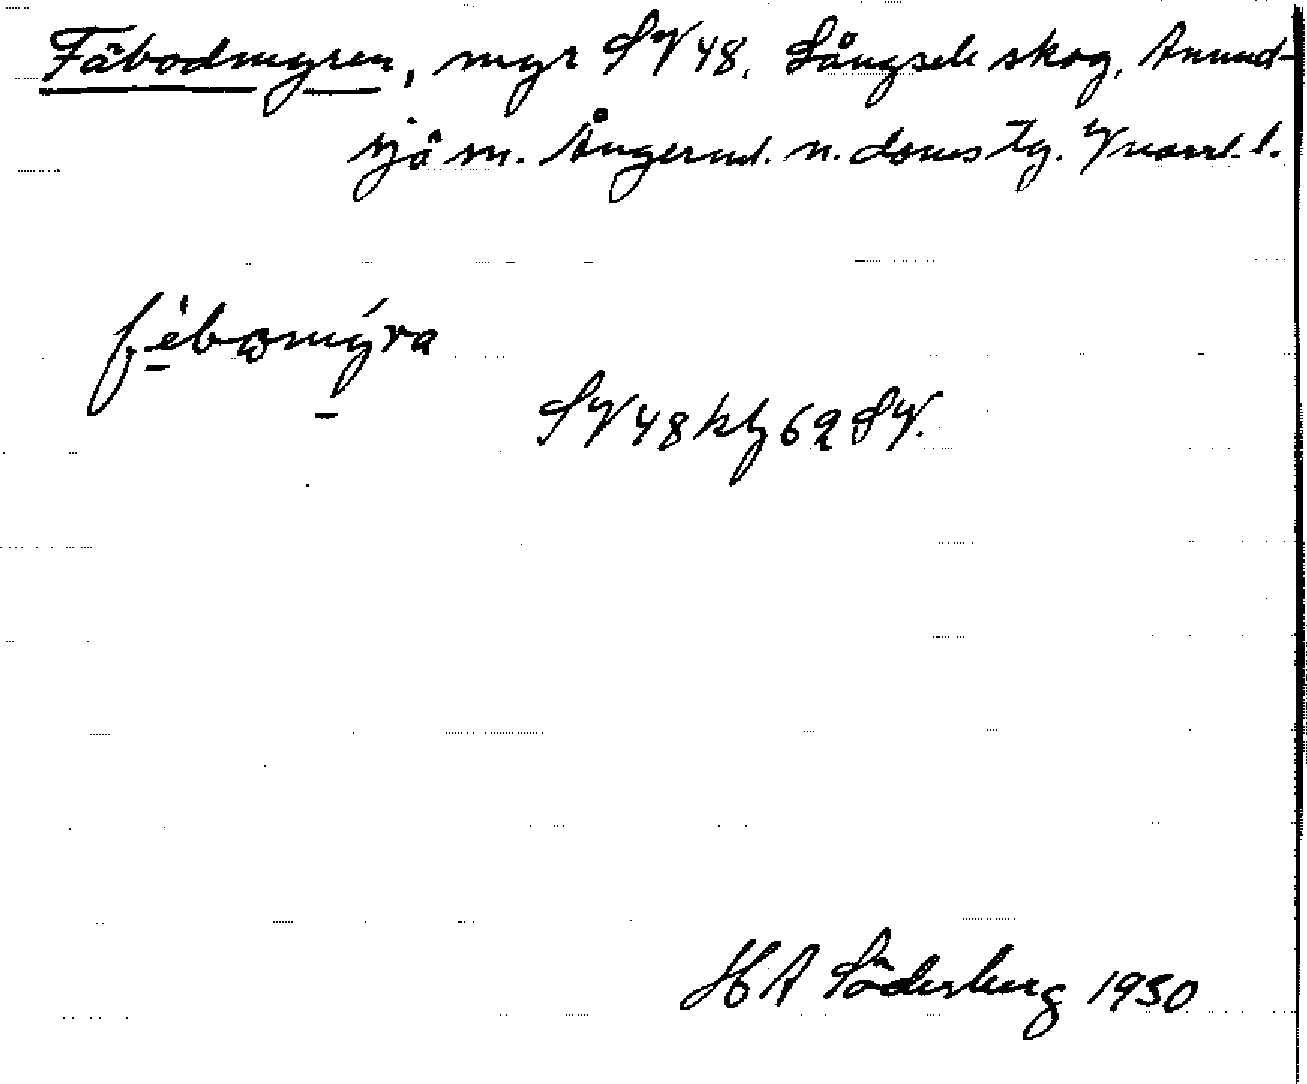 Fäbodmyren, myr SV 48. Långsele skog, Anund-
sjö sn. Ångerml. n. doms Tg. Vnorrl. l.
fèbωmýra
SV 48 khz 62 SV.
HA Söderberg 1950